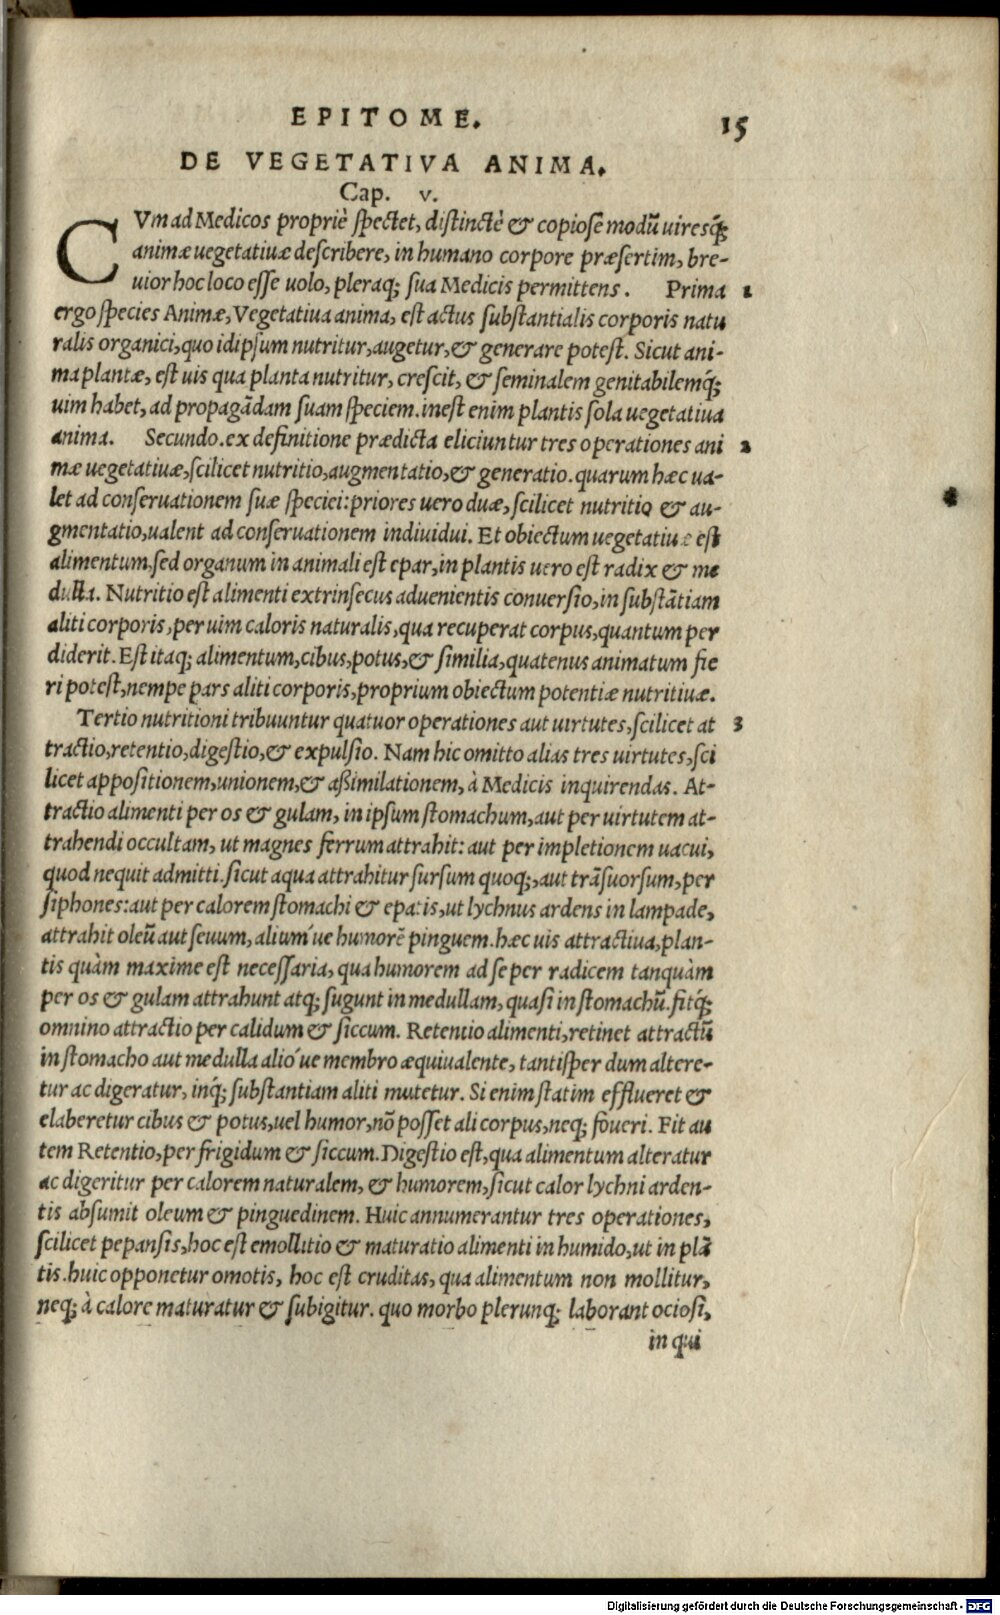 EPITOME. 15
DE VEGETATIVA ANIMA.
Cap. v.
CVm ad Medicos propriè spectet, distinctè & copiosè modū uiresq́;
animæ uegetatiuæ describere, in humano corpore præsertim, bre-
uior hoc loco esse uolo, pleraq; sua Medicis permittens. Prima 1
ergo species Animæ, Vegetatiua anima, est actus substantialis corporis natu
ralis organici, quo id ipsum nutritur, augetur, & generare potest. Sicut ani-
ma plantæ, est uis qua planta nutritur, crescit, & seminalem genitabilemq́;
uim habet, ad propagādam suam speciem. inest enim plantis sola uegetatiua
anima. Secundo. ex definitione prædicta eliciuntur tres operationes ani 2
mæ uegetatiuæ, scilicet nutritio, augmentatio, & generatio. quarum hæc ua-
let ad conseruationem suæ speciei: priores uero duæ, scilicet nutritio & au-
gmentatio, ualent ad conseruationem indiuidui. Et obiectum uegetatiuæ est
alimentum, sed organum in animali est epar, in plantis uero est radix & me
dulla. Nutritio est alimenti extrinsecus aduenientis conuersio, in substātiam
aliti corporis, per uim caloris naturalis, qua recuperat corpus, quantum per
diderit. Est itaq; alimentum, cibus, potus, & similia, quatenus animatum fie
ri potest, nempe pars aliti corporis, proprium obiectum potentiæ nutritiuæ.
Tertio nutritioni tribuuntur quatuor operationes aut uirtutes, scilicet at 3
tractio, retentio, digestio, & expulsio. Nam hic omitto alias tres uirtutes, sci
licet appositionem, unionem, & aßimilationem, à Medicis inquirendas. At-
tractio alimenti per os & gulam, in ipsum stomachum, aut per uirtutem at-
trahendi occultam, ut magnes ferrum attrahit: aut per impletionem uacui,
quod nequit admitti. sicut aqua attrahitur sursum quoq;, aut trāsuorsum, per
siphones: aut per calorem stomachi & epatis, ut lychnus ardens in lampade,
attrahit oleū aut seuum, alium´ue humorē pinguem. hæc uis attractiua, plan-
tis quàm maxime est necessaria, qua humorem ad se per radicem tanquàm
per os & gulam attrahunt atq; sugunt in medullam, quasi in stomachū. fitq́;
omnino attractio per calidum & siccum. Retentio alimenti, retinet attractū
in stomacho aut medulla alio´ue membro æquiualente, tantisper dum altere-
tur ac digeratur, inq́; substantiam aliti mutetur. Si enim statim efflueret &
elaberetur cibus & potus, uel humor, nō posset ali corpus, neq; foueri. Fit au
tem Retentio, per frigidum & siccum. Digestio est, qua alimentum alteratur
ac digeritur per calorem naturalem, & humorem, sicut calor lychni arden-
tis absumit oleum & pinguedinem. Huic annumerantur tres operationes,
scilicet pepansis, hoc est emollitio & maturatio alimenti in humido, ut in plā
tis. huic opponetur omotis, hoc est cruditas, qua alimentum non mollitur,
neq; à calore maturatur & subigitur. quo morbo plerunq; laborant ociosi,
in qui
Digitalisierung gefördert durch die Deutsche Forschungsgemeinschaft - DFG